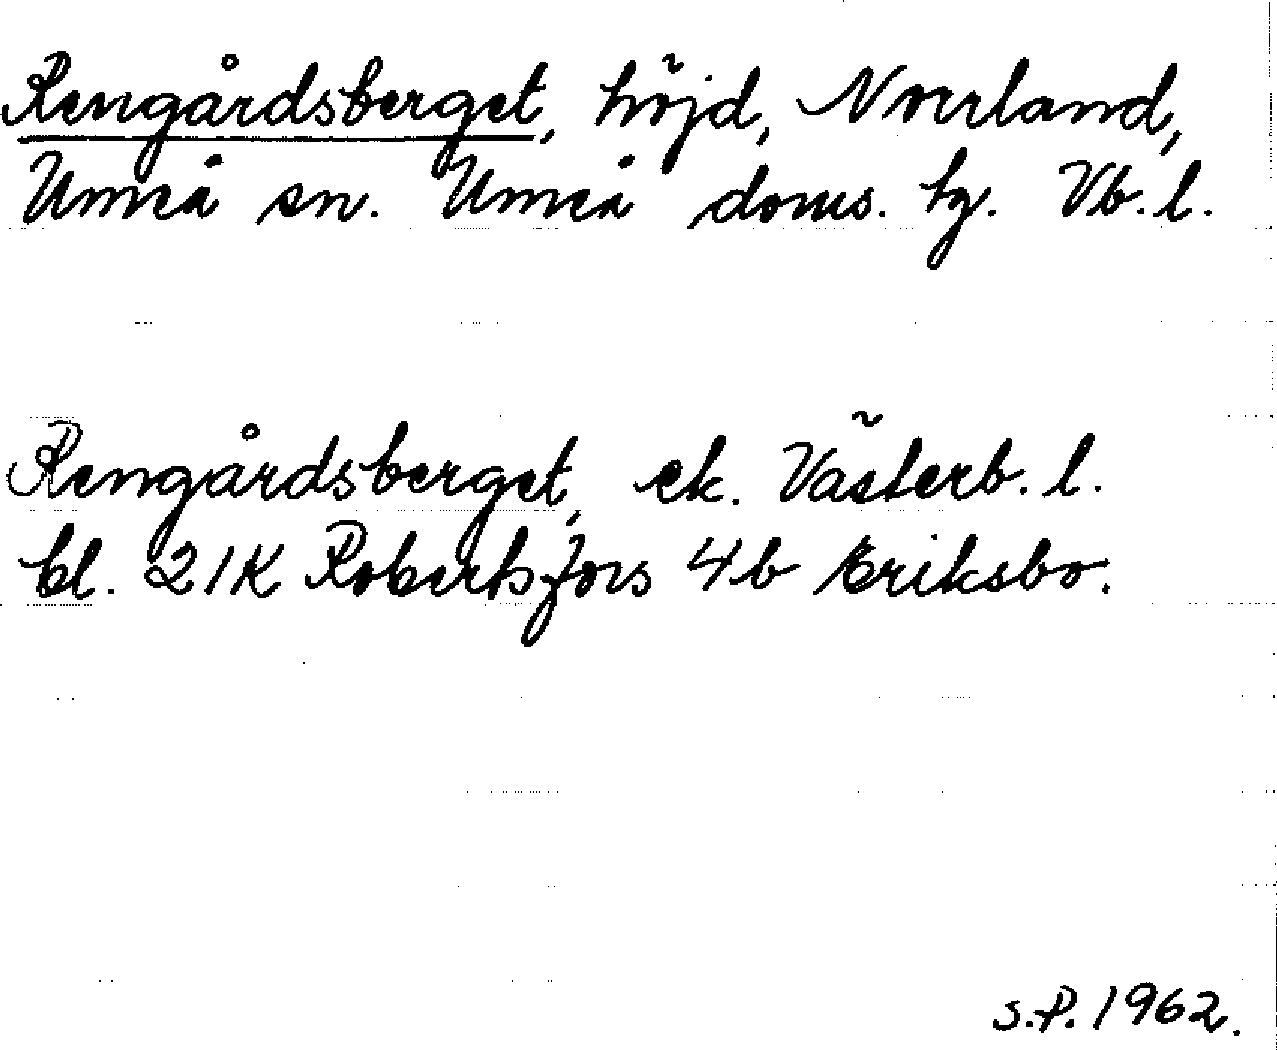 Rengårdsberget, höjd, Norrland,
Umeå sn. Umeå doms. hg. Vb. l.
Rengårdsberget, ek. Västerb. l.
bl. 21K Robertsfors 4b Eriksbo.
S.P. 1962.